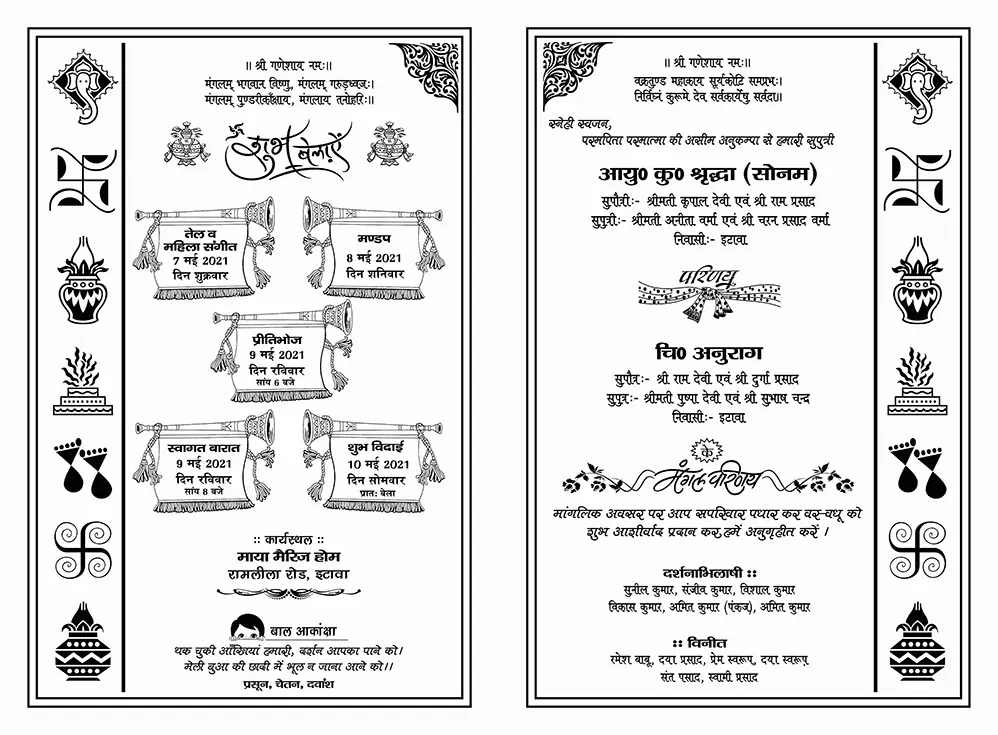 ॥ श्री गणेशाय नमः॥
मंगलम् भगवान विष्णु, मंगलम् गरुड़ध्वजः।
मंगलम् पुण्डरीकाँक्षाय, मंगलाय तनोहरिः॥
शुभ बेलाऐं
तेल व
महिला संगीत
7 मई 2021
दिन शुक्रवार
मण्डप
8 मई 2021
दिन शनिवार
प्रीतिभोज
9 मई 2021
दिन रविवार
सांय 6 बजे
स्वागत बारात
9 मई 2021
दिन रविवार
सांय 8 बजे
शुभ विदाई
10 मई 2021
दिन सोमवार
प्रातः बेला
:: कार्यस्थल :
माया मैरिज होम
रामलीला रोड, इटावा
बाल आकांक्षा
थक चुकी आँखियां हमारी, दर्शन आपका पाने को।
मेली बुआ की छादी में भूल न जाना आने को।।
प्रसून, चेतन, दवांश
॥ श्री गणेशाय नमः॥
वक्रतुण्ड महाकाय सूर्यकोटि समप्रभः।
निर्विघ्नं कुरूमे देव सर्वकार्येषु सर्वदा॥
स्नेही स्वजन,
परमपिता परमात्मा की असीम अनुकम्पा से हमारी सुपुत्री
आयु० कु० श्रृद्धा (सोनम)
सुपौत्रीः- श्रीमती कृपाल देवी एवं श्री राम प्रसाद
सुपुत्रीः- श्रीमती अनीता वर्मा एवं श्री चरन प्रसाद वर्मा
निवासीः- इटावा
परिणय
चि० अनुराग
सुपौत्रः- श्री राम देवी एवं श्री दुर्गा प्रसाद
सुपुत्रः- श्रीमती पुष्पा देवी एवं श्री सुभाष चन्द्र
निवासीः- इटावा
के
मंगल परिणय
मांगलिक अवसर पर आप सपरिवार पधार कर वर-वधू को
शुभ आशीर्वाद प्रदान कर,हमें अनुगृहीत करें ।
दर्शनाभिलाषी ::
सुनील कुमार, संजीव कुमार, विशाल कुमार
विकास कुमार, अमित कुमार (पंकज), अमित कुमार
:: विनीत
रमेश बाबू, दया प्रसाद, प्रेम स्वरूप, दया स्वरूप
संत पसाद, स्वामी प्रसाद